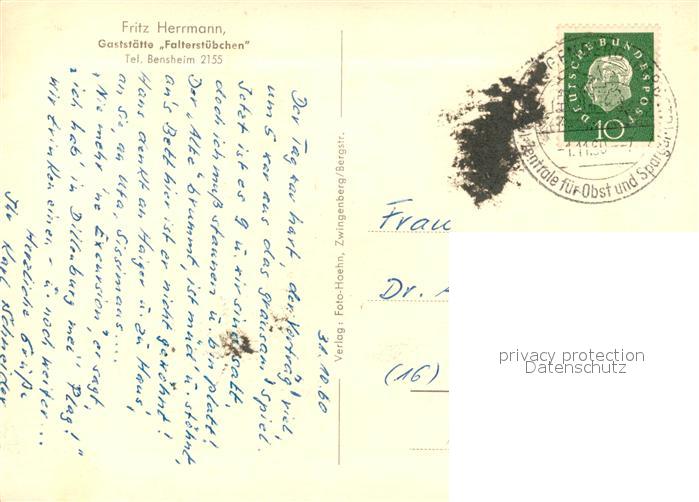 Fritz Herrmann,
Gaststätte „Falterstübchen"
Tel. Bensheim 2155
31.10.60
Der Tag war hart, der Vorträg' viel,
um 5 war aus das grausam' Spiel.
Jetzt ist es 9 u. wir sind satt,
doch ich muß staunen u. bin platt!
Der „Alte" brummt, ist müd' u. stöhnt,
an's Bett hier ist er nicht gewöhnt!
Haus denkt an Haiger u. zu Haus,
an Sie, an Uta, Sissimaus...
„Nie mehr 'ne Excursion", er sagt,
„ich hab in Dillenburg mei' Plag!"
Wir trinken einen – u. noch weiter...
Herzliche Grüße
Ihr Karl Schneider
Verlag: Foto-Haehn, Zwingenberg/Bergstr.
DEUTSCHE BUNDESPOST
10
1.11.60
zentrale für Obst und Spargel
Frau
Dr.
(16)
privacy protection
Datenschutz